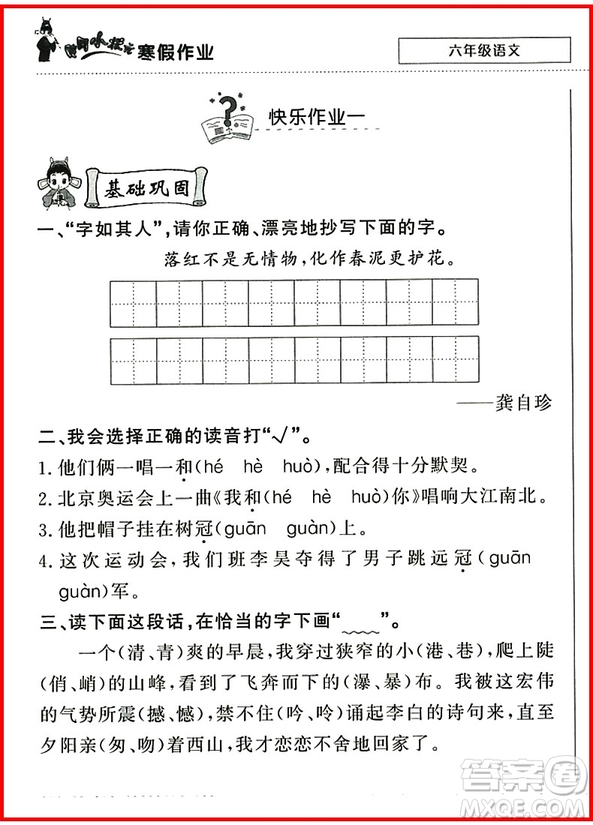 寒假作业
六年级语文
?
快乐作业一
基础巩固
一、“字如其人”,请你正确、漂亮地抄写下面的字。
落红不是无情物,化作春泥更护花。
——龚自珍
二、我会选择正确的读音打“√”。
1. 他们俩一唱一和(hé hè huò),配合得十分默契。
2. 北京奥运会上一曲《我和(hé hè huò)你》唱响大江南北。
3. 他把帽子挂在树冠(guān guàn)上。
4. 这次运动会,我们班李昊夺得了男子跳远冠(guān
guàn)军。
三、读下面这段话,在恰当的字下画“﹏﹏”。
一个(清、青)爽的早晨,我穿过狭窄的小(港、巷),爬上陡
(俏、峭)的山峰,看到了飞奔而下的(瀑、暴)布。我被这宏伟
的气势所震(撼、憾),不禁(吟、呤)诵起李白的诗句来,直至
夕阳亲(匆、吻)着西山,我才恋恋不舍地回家了。
答案圈
MXQE.COM